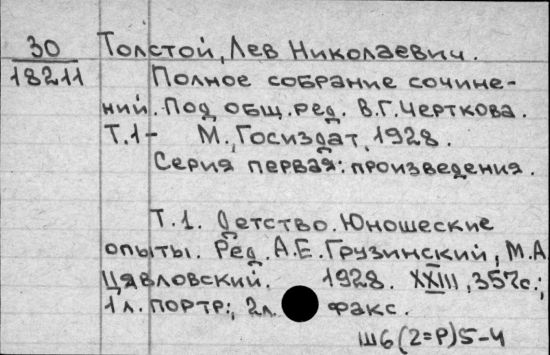 30 Толстой, Лев Николаевич.
18211 Полное собрание сочине-
ний. Под общ. ред. В.Г. Черткова.
Т.1- М., Госиздат, 1928.
Серия первая: произведения.
Т.1. Детство. Юношеские
опыты. Ред. А.Е. Грузинский, М.А.
Цявловский. 1928. XXIII, 357с.;
1 л. портр., 2л. факс.
Ш6(2=Р)5-4